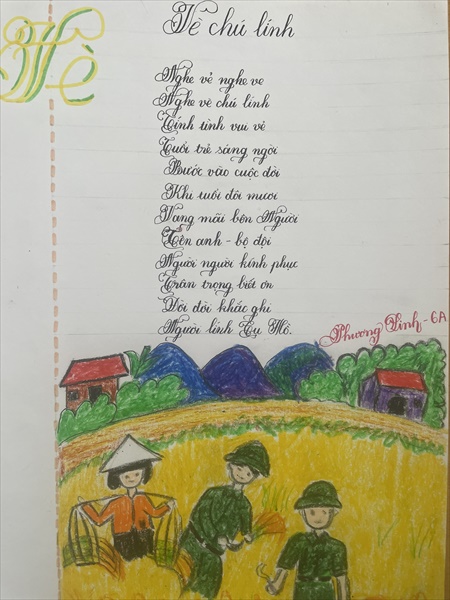 Vè
Vè chú lính
Nghe vẻ nghe ve
Nghe vè chú lính
Tính tình vui vẻ
Tuổi trẻ sáng ngời
Bước vào cuộc đời
Khi tuổi đôi mươi
Vang mãi bên Người
Tên anh - bộ đội
Người người kính phục
Trân trọng biết ơn
Đời đời khắc ghi
Người lính Cụ Hồ.
Phương Linh - 6A